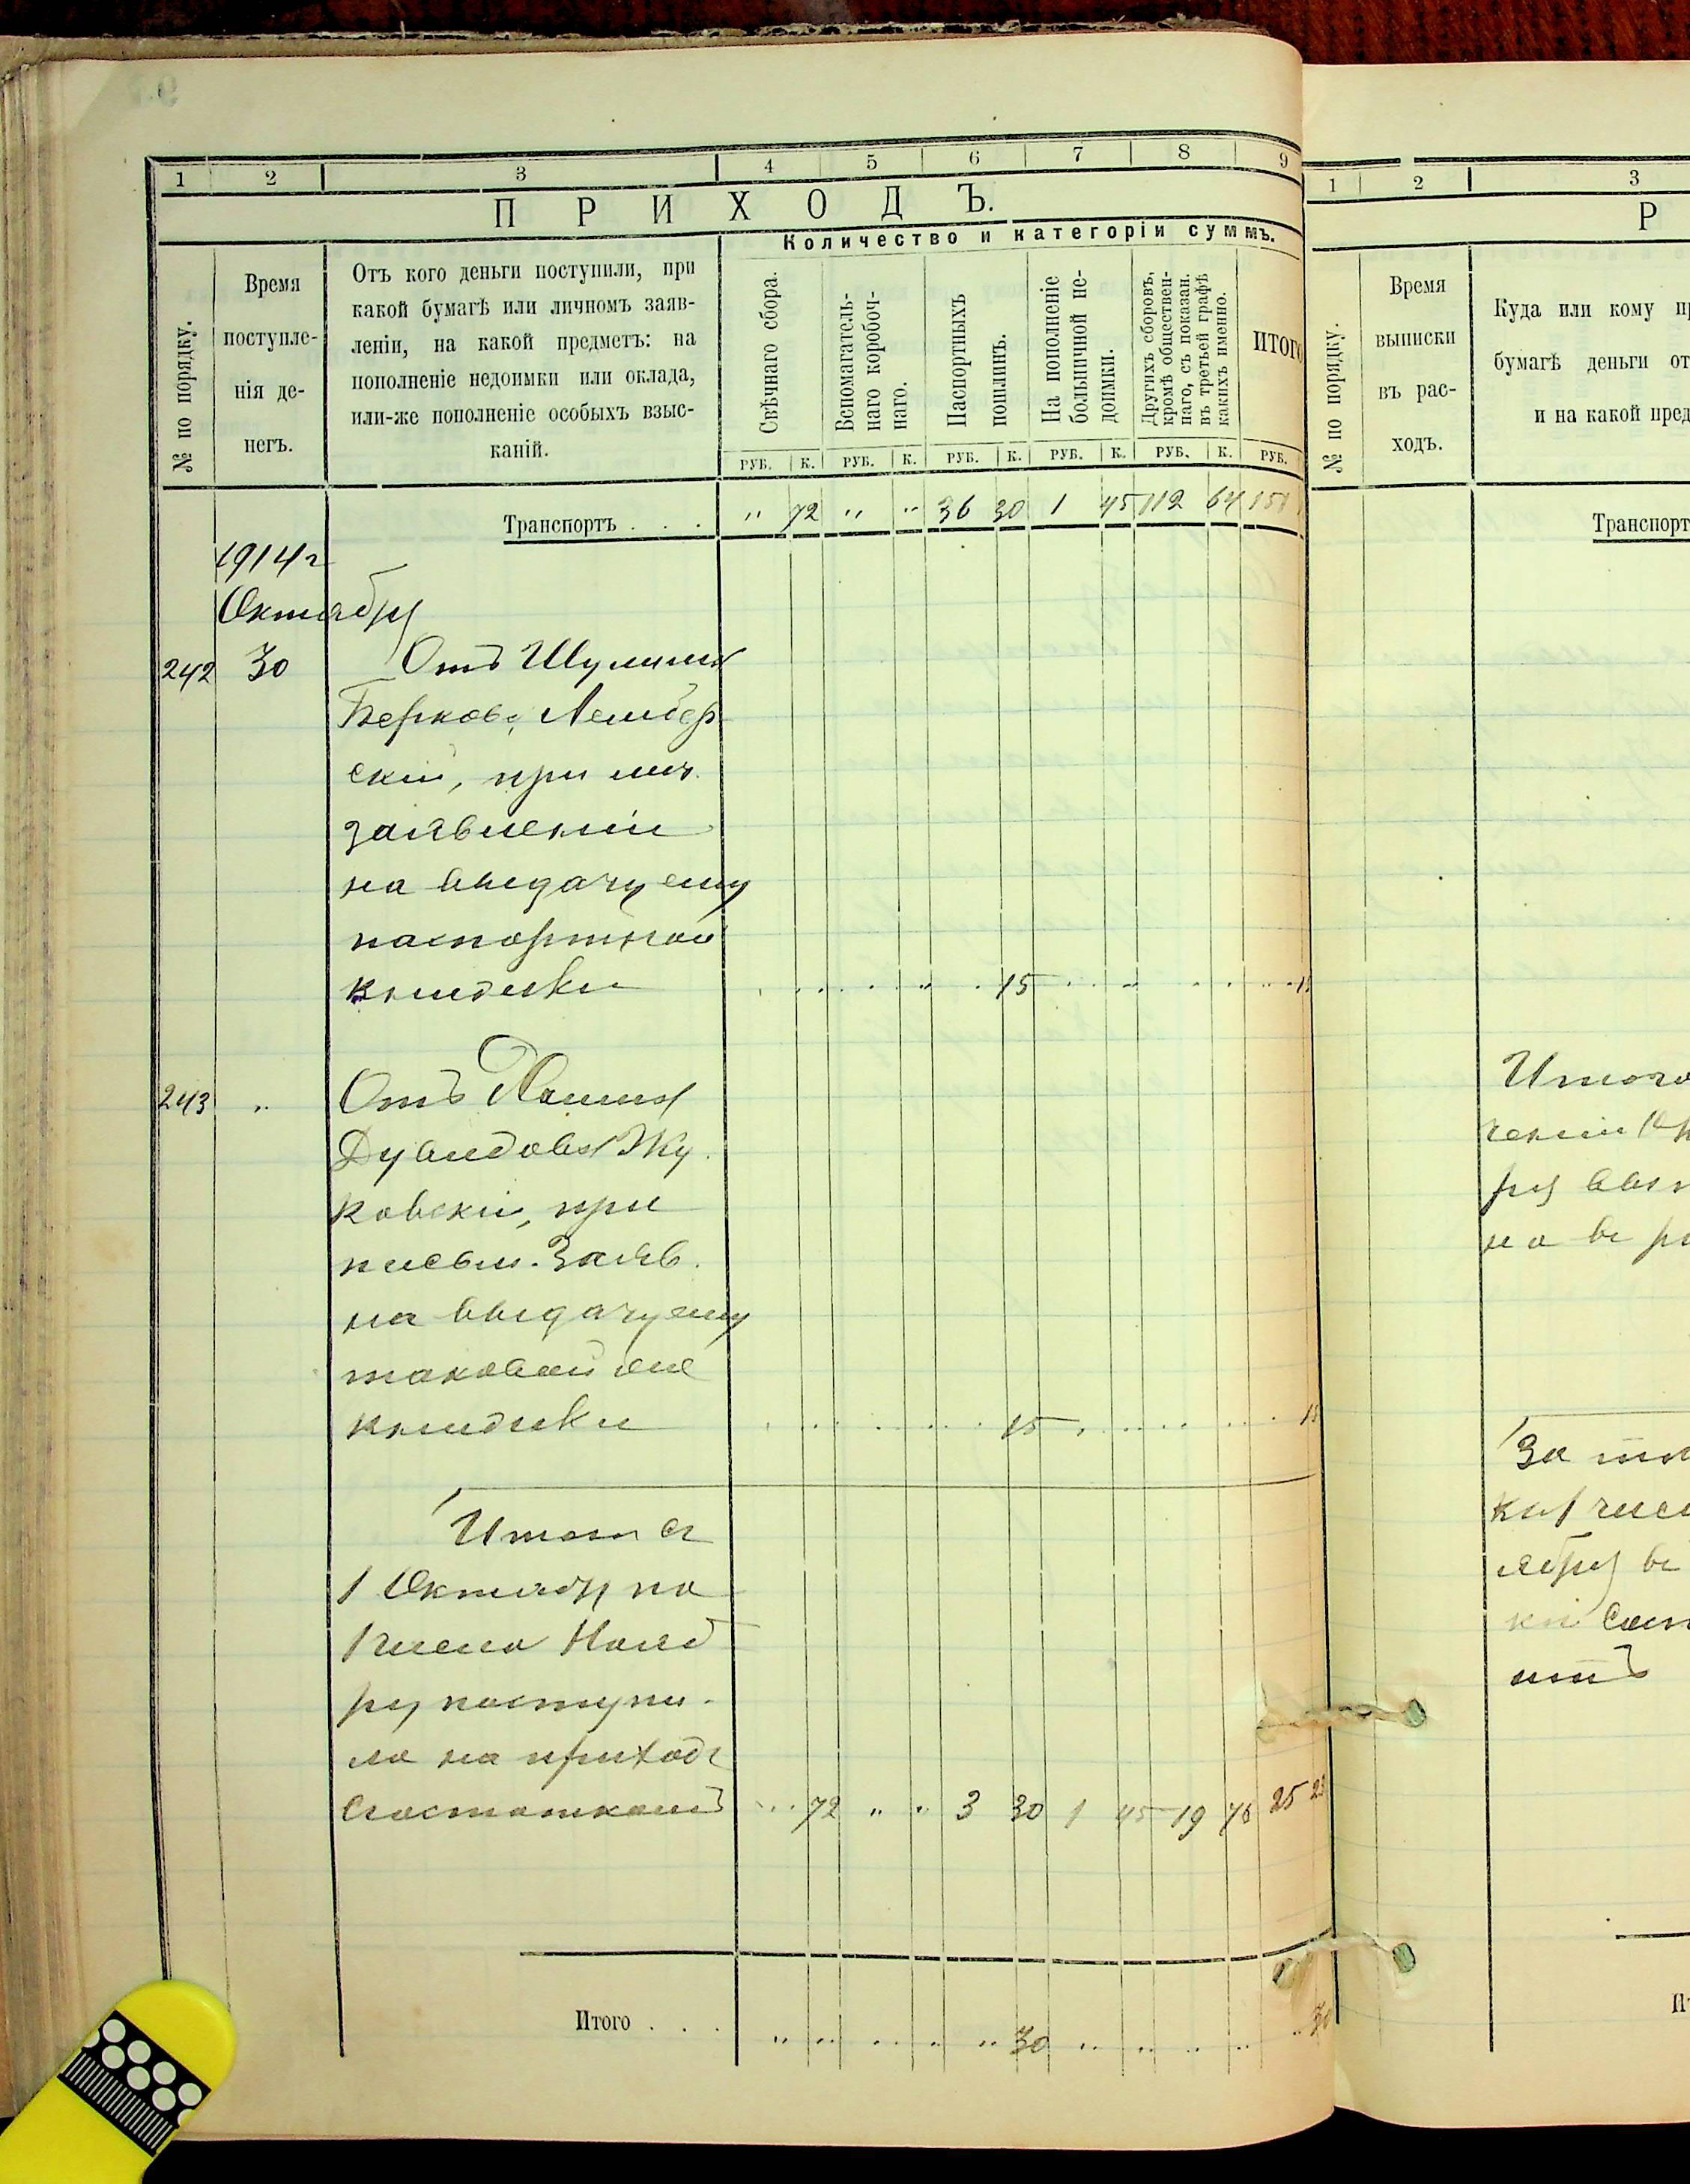 1 2 3 4 5 6 7 8 9
ПРИХОДЪ.
Количество и категоріи суммъ.
№ по порядку.
Время
поступле-
нія де-
негъ.
Отъ кого деньги поступили, при
какой бумагѣ или личномъ заяв-
леніи, на какой предметъ: на
пополненіе недоимки или оклада,
или-же пополненіе особыхъ взыс-
каній.
Свѣчнаго сбора.
Вспомагатель-
наго коробоч-
наго.
Паспортныхъ
пошлинъ.
На пополненіе
больничной не-
доимки.
Другихъ сборовъ,
кромѣ обществен-
наго, съ показан.
въ третьей графѣ
какихъ именно.
ИТОГО
РУБ. К. РУБ. К. РУБ. К. РУБ. К. РУБ. К. РУБ.
Транспортъ . . . " 72 " " 36 30 1 45 112 64 151
1914 г
Октября
242 30 Отъ
Берков.
скій, при лич.
заявленіи
на выдачу ему
паспортной
книжки 15 15
243 " Отъ
Дувидова Жу
ковскій, при
письм. Заяв.
на выдачу ему
таковой же
книжки 15 15
Итого с
1 Октября по
1 числа Нояб
ря поступи-
ло на приходъ
с остаткомъ 72 " " 3 30 1 45 19 76 25 23
Итого . . . 30 30
1 2 3
Р
№ по порядку.
Время
выписки
въ рас-
ходъ.
Куда или кому
бумагѣ деньги от
и на какой пред
Транспорт
Итого
ря
на
За